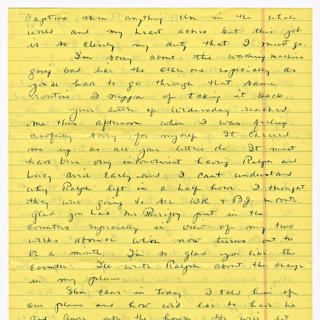 Captiva than anything else in the whole
world and my heart aches but this job
is so clearly my duty that I must go.
I'm sorry about the washing machine
going bad like the other one especially as
you'll have to go through that same
routine I suppose of taking it back.
Your letter of Wednesday reached
me this afternoon when I was feeling
awfully sorry for myself. It cheered
me up as all your letters do. It must
have been very inconvenient having Ralph and
Lucy arrive early and I can't understand
why Ralph left in a half hour. I thought
they were going to see WK & BJ
Glad you had Mr. put in the
counters especially in view of my two
weeks absence which now turns out to
be a month. I'm so glad you like the
counter. I'll write Ralph about the change
in my plans.
came in today. I told him of
our plans and how we'd like to have he
and the house. He will let